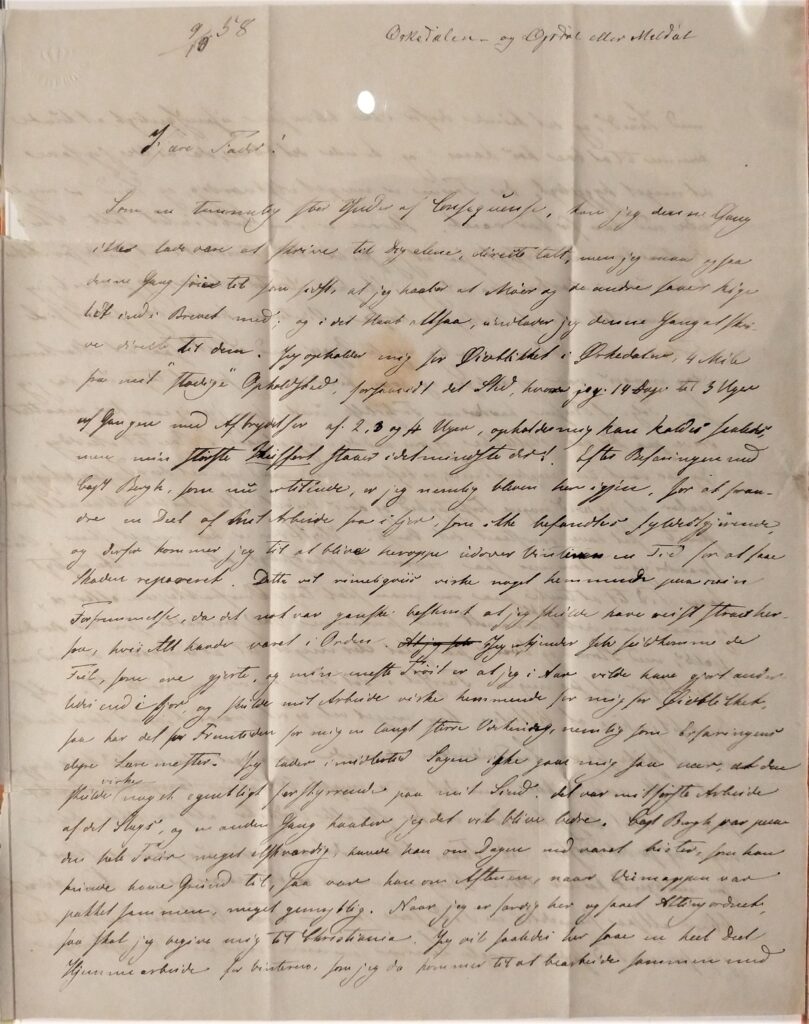 9/10 58
Orkedalen - og Opdal eller Meldal
Kjære Fader!
Som en temmelig stor Ynder af Consequense, kan jeg denne Gang
ikke lade være at skrive til Dig alene, directe talt, men jeg maa ogsaa
denne Gang føie til som sidst, at jeg haaber at Moer og de andre faaer kige
lidt ind i Brevet med; og i det Haab altsaa, undlader jeg denne Gang at skri-
ve directe til dem. Jeg opholder mig for Øieblikket i Orkedalen, 4 Mile
fra mit "stadige" Opholdssted, forsaavidt det Sted, hvor jeg 14 Dage til 3 Uger
af Gangen med Afbrydelser af 2, 3 og 4 Uger, opholder mig kan kaldes saaledes,
men min største Kuffert staaer i det mindste der! Efter Befaringen med
Capt Bergh, som nu er tilende, er jeg nemlig bleven her igjen, for at foran-
dre en Deel af mit Arbeide fra ifjor, som ikke befandtes fyldestgjørende,
og derfor kommer jeg til at blive heroppe udover Vinteren en Tid for at faae
Skaden repareret. Dette vil rimeligviis virke noget hemmende paa min
Forfremmelse, da det nok var ganske bestemt at jeg skulde have reist strax her-
fra, hvis Alt havde været i Orden. Jeg kjender selv fuldkomme de
Feil, som ere gjorte, og min meste Trøst er at jeg i Aar vilde have gjort ander-
ledes end ifjor, og skulde mit Arbeide virke hemmende for mig for Øieblikket,
saa har det for Fremtiden for mig en langt større Virkning, nemlig som Erfaringens
dyre Læremester. Jeg lader imidlertid Sagen ikke gaae mig saa nær, at den
skulde virke noget egentligt forstyrrende paa mit Sind. det var mit første Arbeide
af det Slags, og en anden Gang haaber jeg det vil blive bedre. Capt Bergh var paa
den hele Tour meget elskværdig; havde han om Dagen end været bister, som han
kunde have Grund til, saa var han om Aftenen, naar Veimappen var
pakket sammen, meget gemytlig. Naar jeg er færdig her og faaet Alting ordnet,
saa skal jeg begive mig til Christiania. Jeg vil saaledes her faae en heel Deel
Hjemmearbeide for Vinteren, som jeg da kommer til at bearbeide sammen med